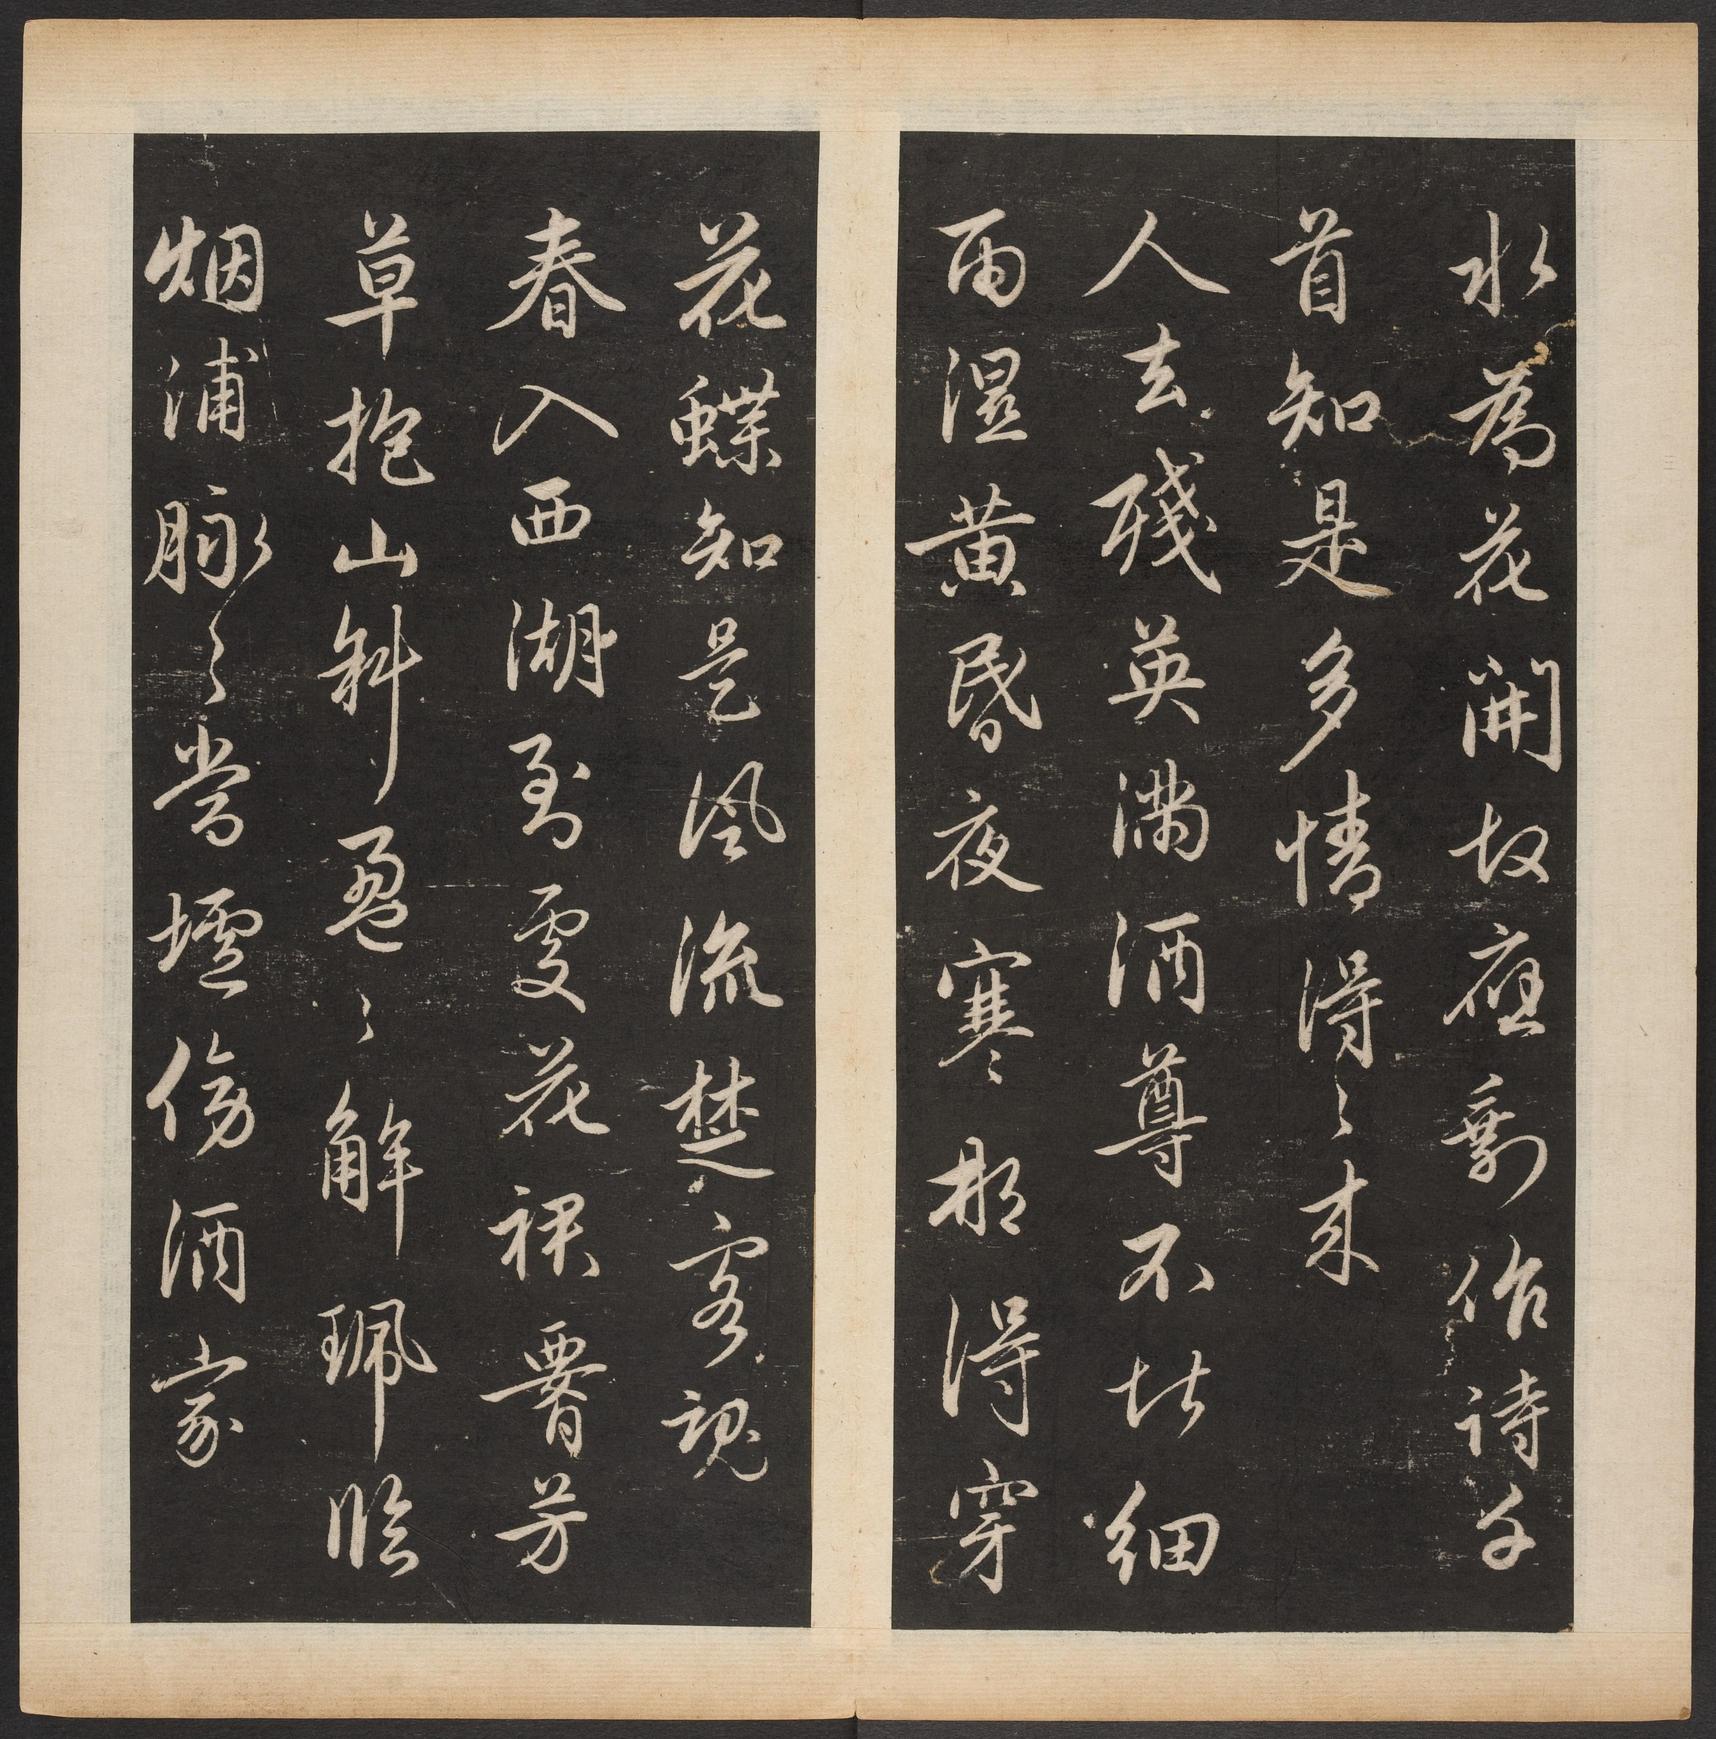 水為花開故應剩作詩千
首知是多情得〻來
人去殘英滿酒尊不堪細
雨湿黃昏夜寒那得穿
花蝶知是風流楚客魂
春入西湖到處花裙腰芳
草抱山斜盈〻解珮臨
烟浦脉〻當壚傍酒家